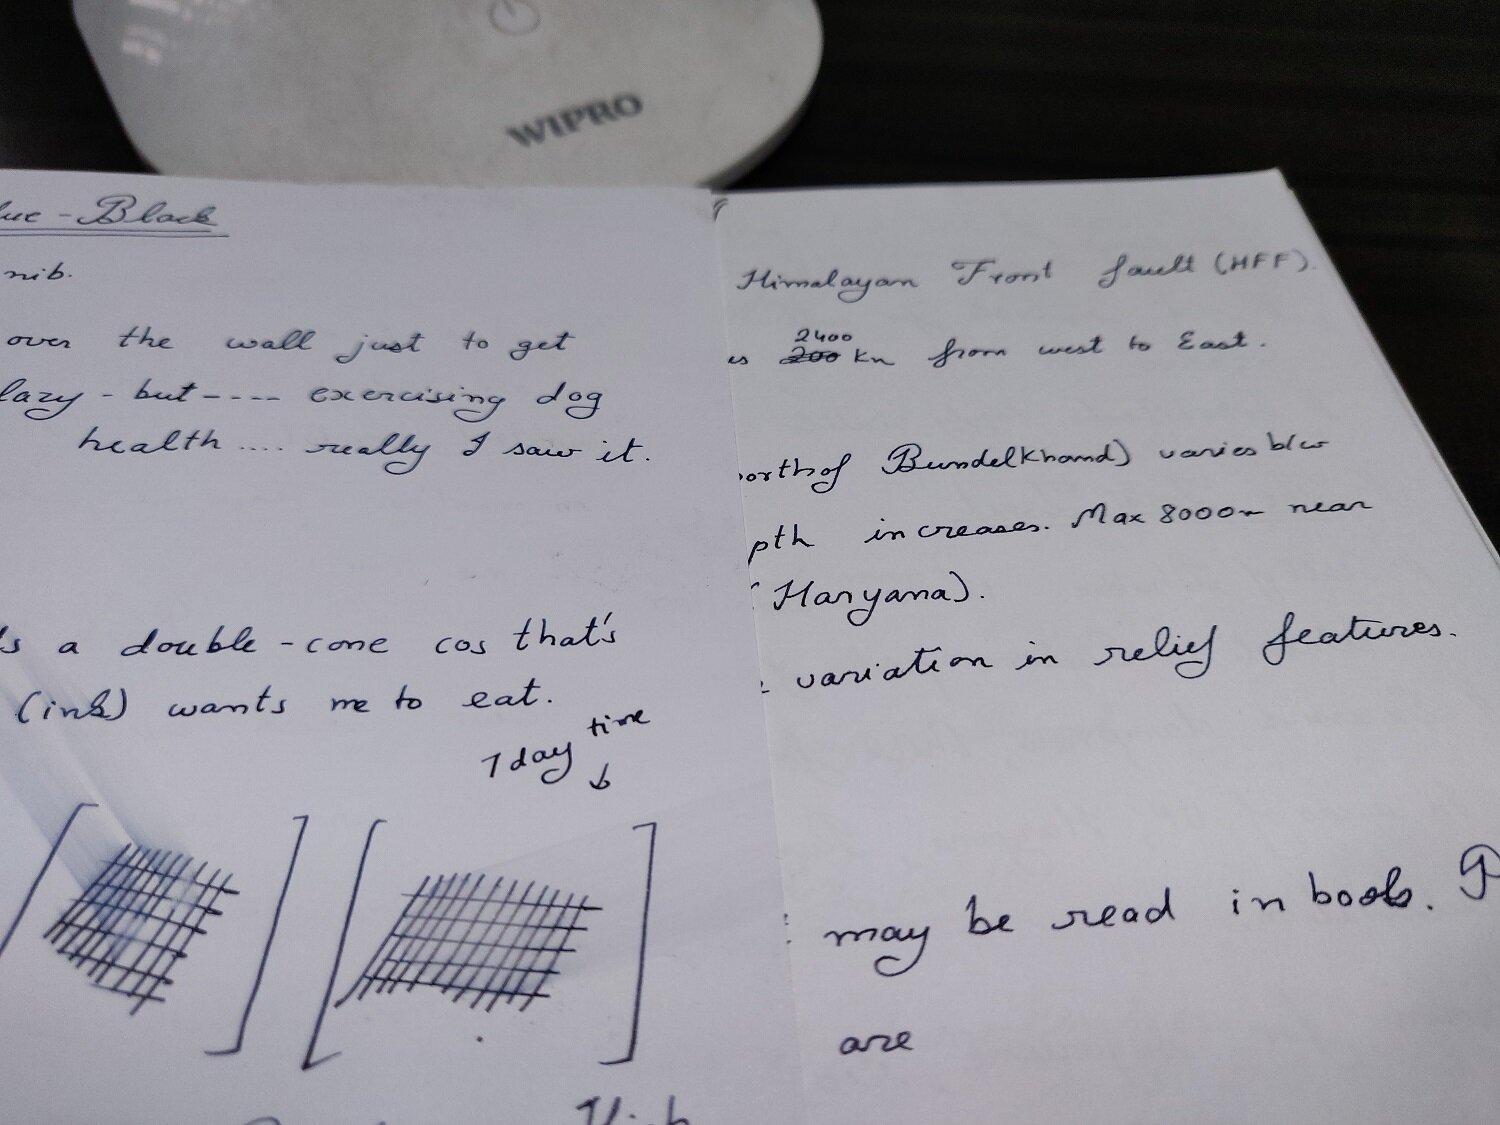 WIPRO
lue - Black
nib.
over the wall just to get
lazy - but ---- exercising dog
health .... really I saw it.
is a double-cone cos that's
(ink) wants me to eat.
1 day time
High
Himalayan Front fault (HFF).
es 2400 km from west to East.
orth of Bundelkhand) varies b/w
pth increases. Max 8000m near
(Haryana).
variation in relief features.
may be read in book. P
are